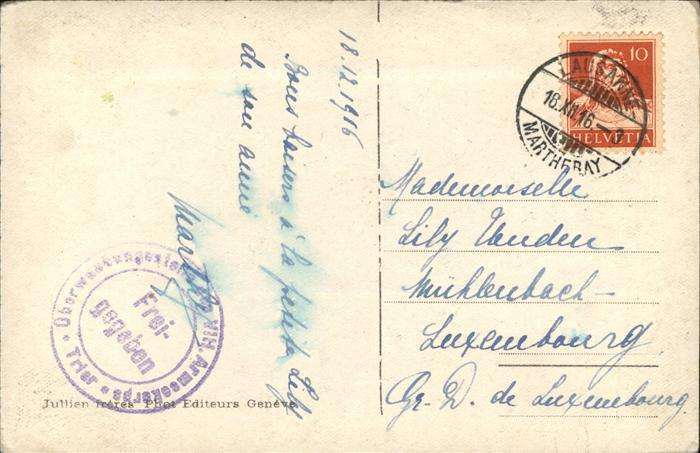 18.12.1916
Bons baisers à la petite Lily
de son amie
10
HELVETIA
LAUSANNE
18.XII.16
MARTHERAY
Mademoiselle
Lily Vanden
Mühlenbach-
Luxembourg
Gr. D. de Luxembourg.
Oberwachungsstelle VIII. Armeekorps
Trier
Frei-
gegeben
Jullien frères Phot Editeurs Genève